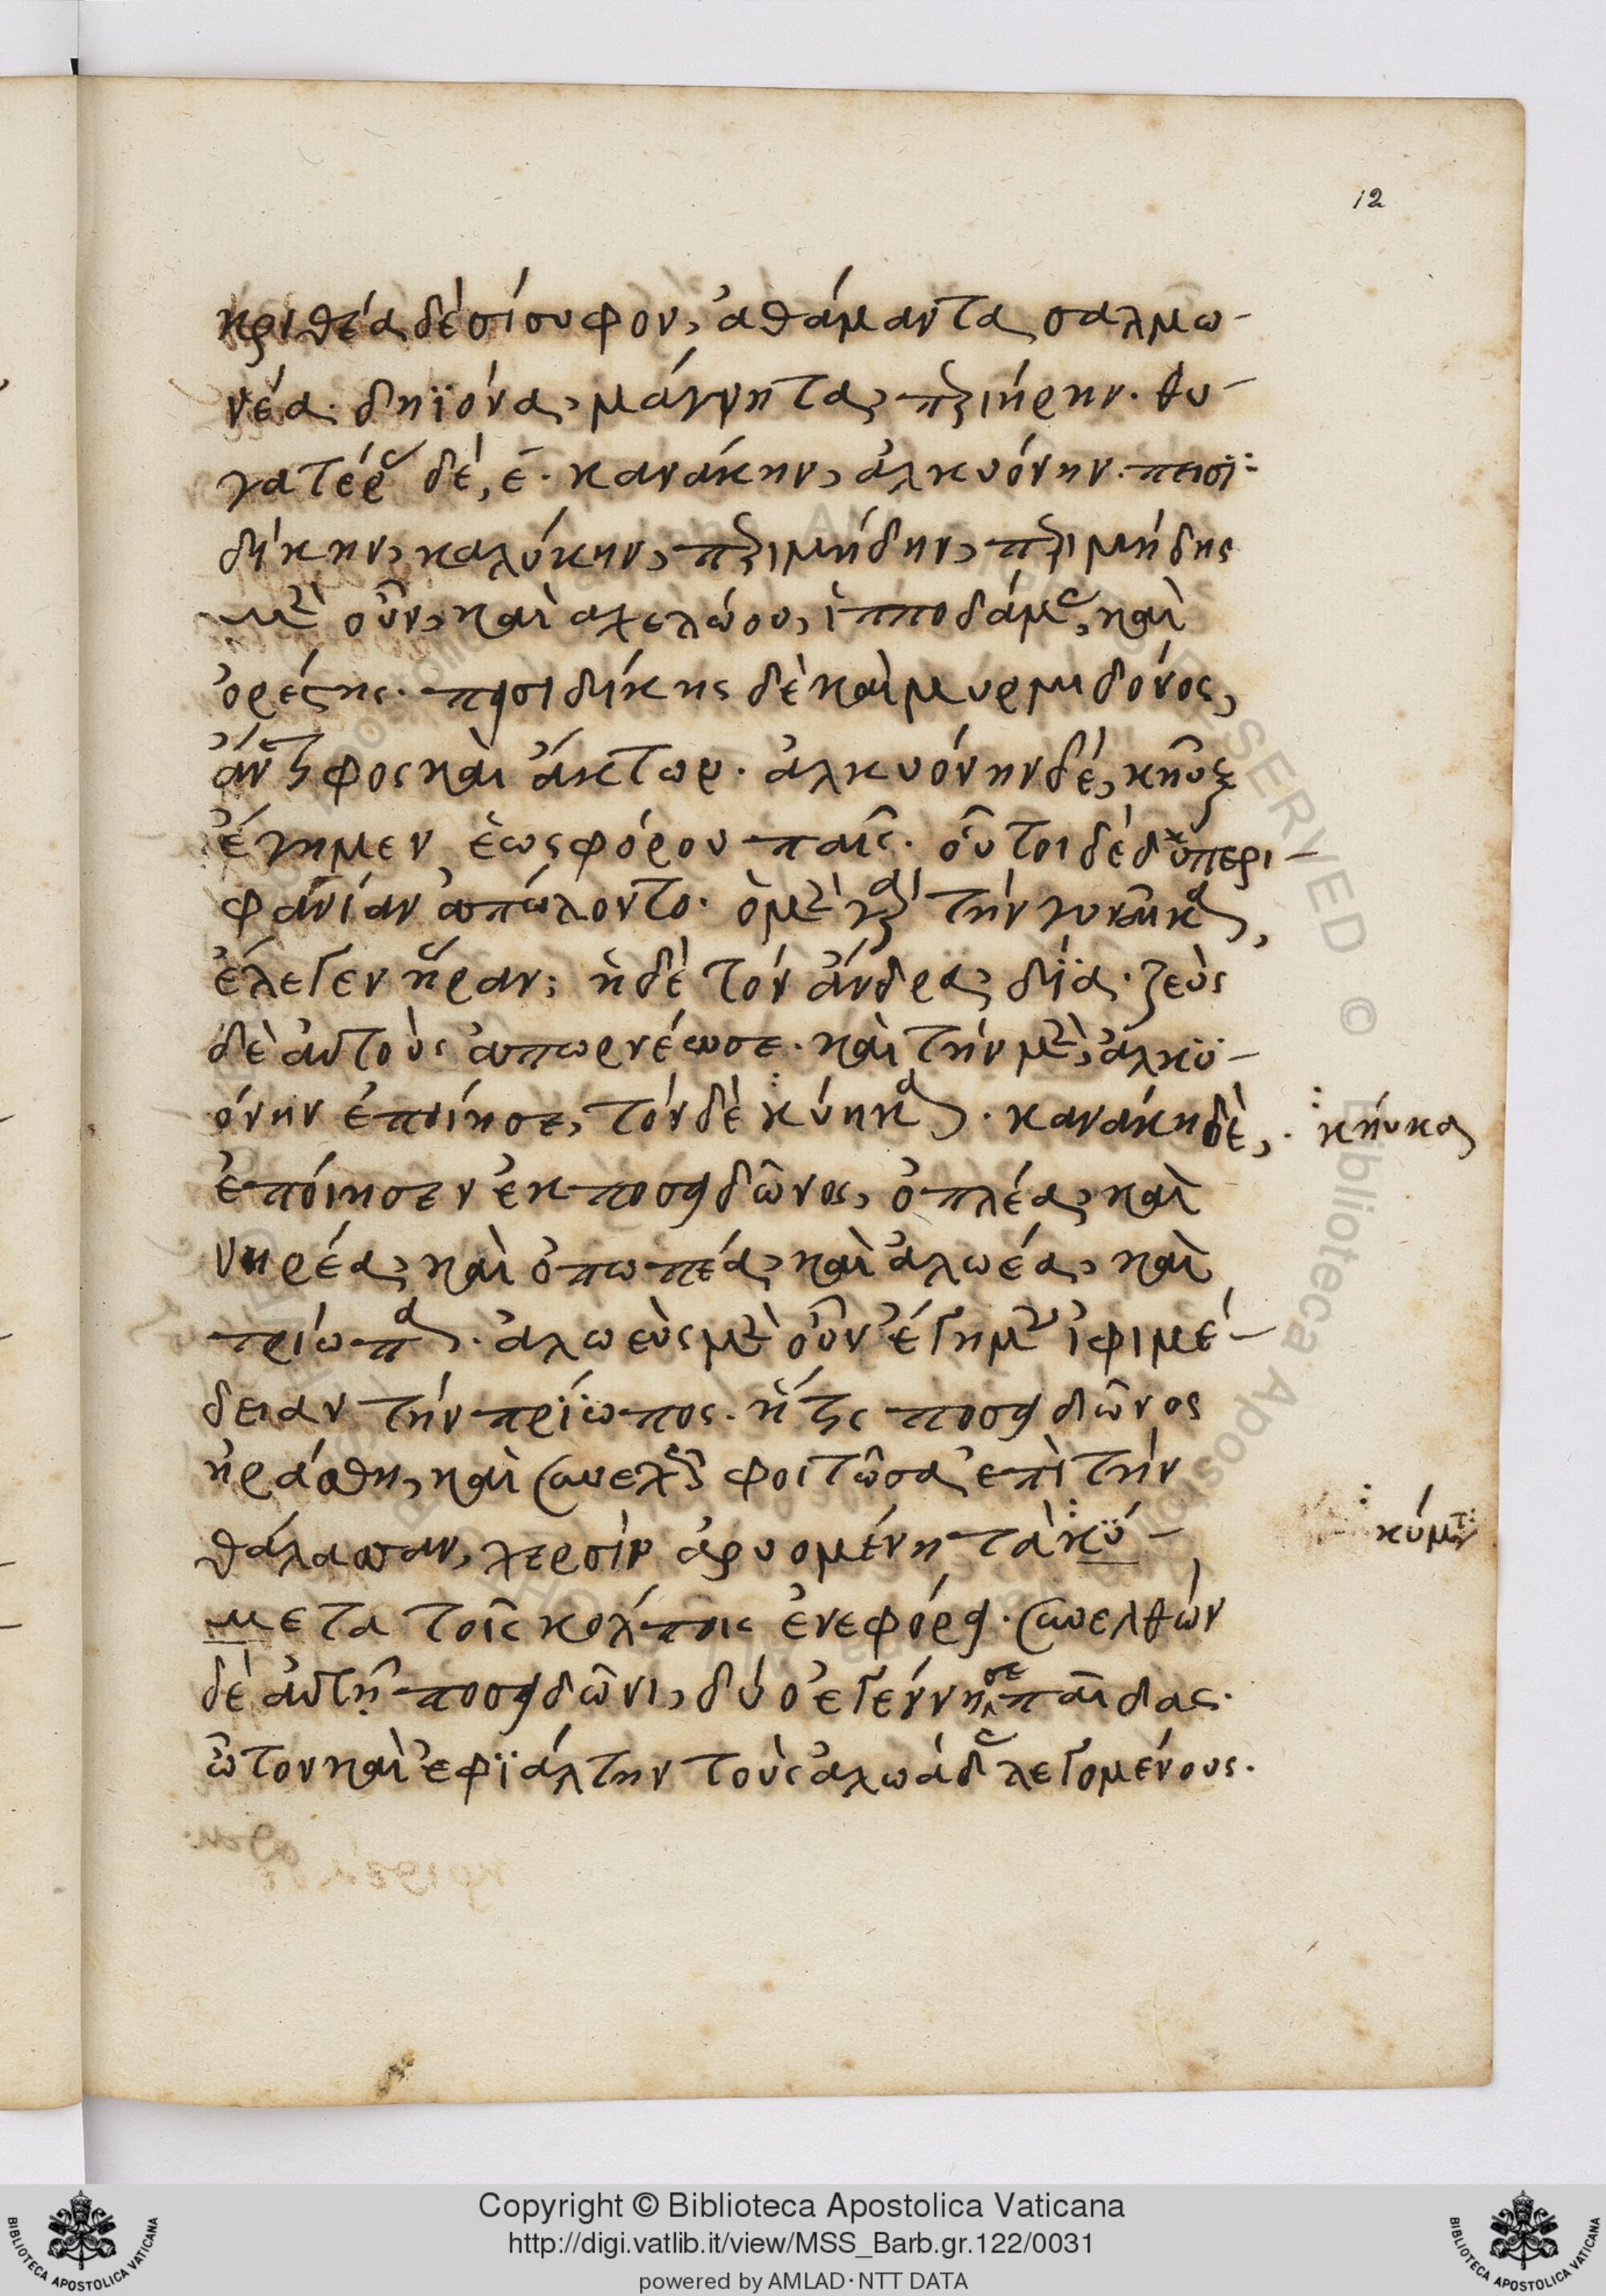 12
κριθέα δὲ σίσυφον, ἀθάμαντα, σαλμω-
νέα. δηϊόνα, μάγνητα, περιήρην. θυ-
γατέρας δέ, ε̄. κανάκην, ἀλκυόνην. πεισϊ-
δίκην, καλύκην, περιμήδην, περιμήδης
μὲν οὖν, καὶ ἀχελώου, ἱπποδάμας, καὶ
ὀρέστης. πεισιδίκης δὲ καὶ μυρμιδόνος,
ἄντιφος καὶ ἄκτωρ. ἀλκυόνην δέ, κῆυξ
ἔγημεν ἑωσφόρου παῖς. οὗτοι δὲ δι' ὑπερι-
φανίαν ἀπώλοντο. ὁ μὲν γὰρ τὴν γυναῖκα,
ἔλεγεν ἥραν; ἡ δὲ τὸν ἄνδρα, δία. ζεὺς
δὲ αὐτοὺς ἀπωρνέωσε. καὶ τὴν μὲν, ἀλκϋ-
όνην ἐποίησε, τὸν δὲ κύηκα. κανάκη δὲ,
κήυκα
ἐπόιησεν ἐκ ποσειδῶνος, ὁπλέα, καὶ
νηρέα, καὶ ὀπωπέα, καὶ ἀλωέα, καὶ
τρίωπα. ἀλωεὺς μὲν οὖν ἔγημεν ἰφιμέ-
δειαν τὴν τρίωπος. ἥτις ποσειδῶνος
ἠράσθη, καὶ συνεχῶς φοιτῶσα ἐπὶ τὴν
θάλασσαν, χερσὶν ἀρυομένη τὰ κϋ-
κύματα
ματα τοῖς κόλποις ἐνεφόρει. συνελθὼν
δὲ αὐτῆ ποσειδῶνι, δύο ἐγέννησε παῖδας.
ὦτον καὶ ἐφϊάλτην τοὺς ἀλωάδας λεγομένους.
Copyright © Biblioteca Apostolica Vaticana
http://digi.vatlib.it/view/MSS_Barb.gr.122/0031
powered by AMLAD·NTT DATA
BIBLIOTECA APOSTOLICA VATICANA
BIBLIOTECA APOSTOLICA VATICANA